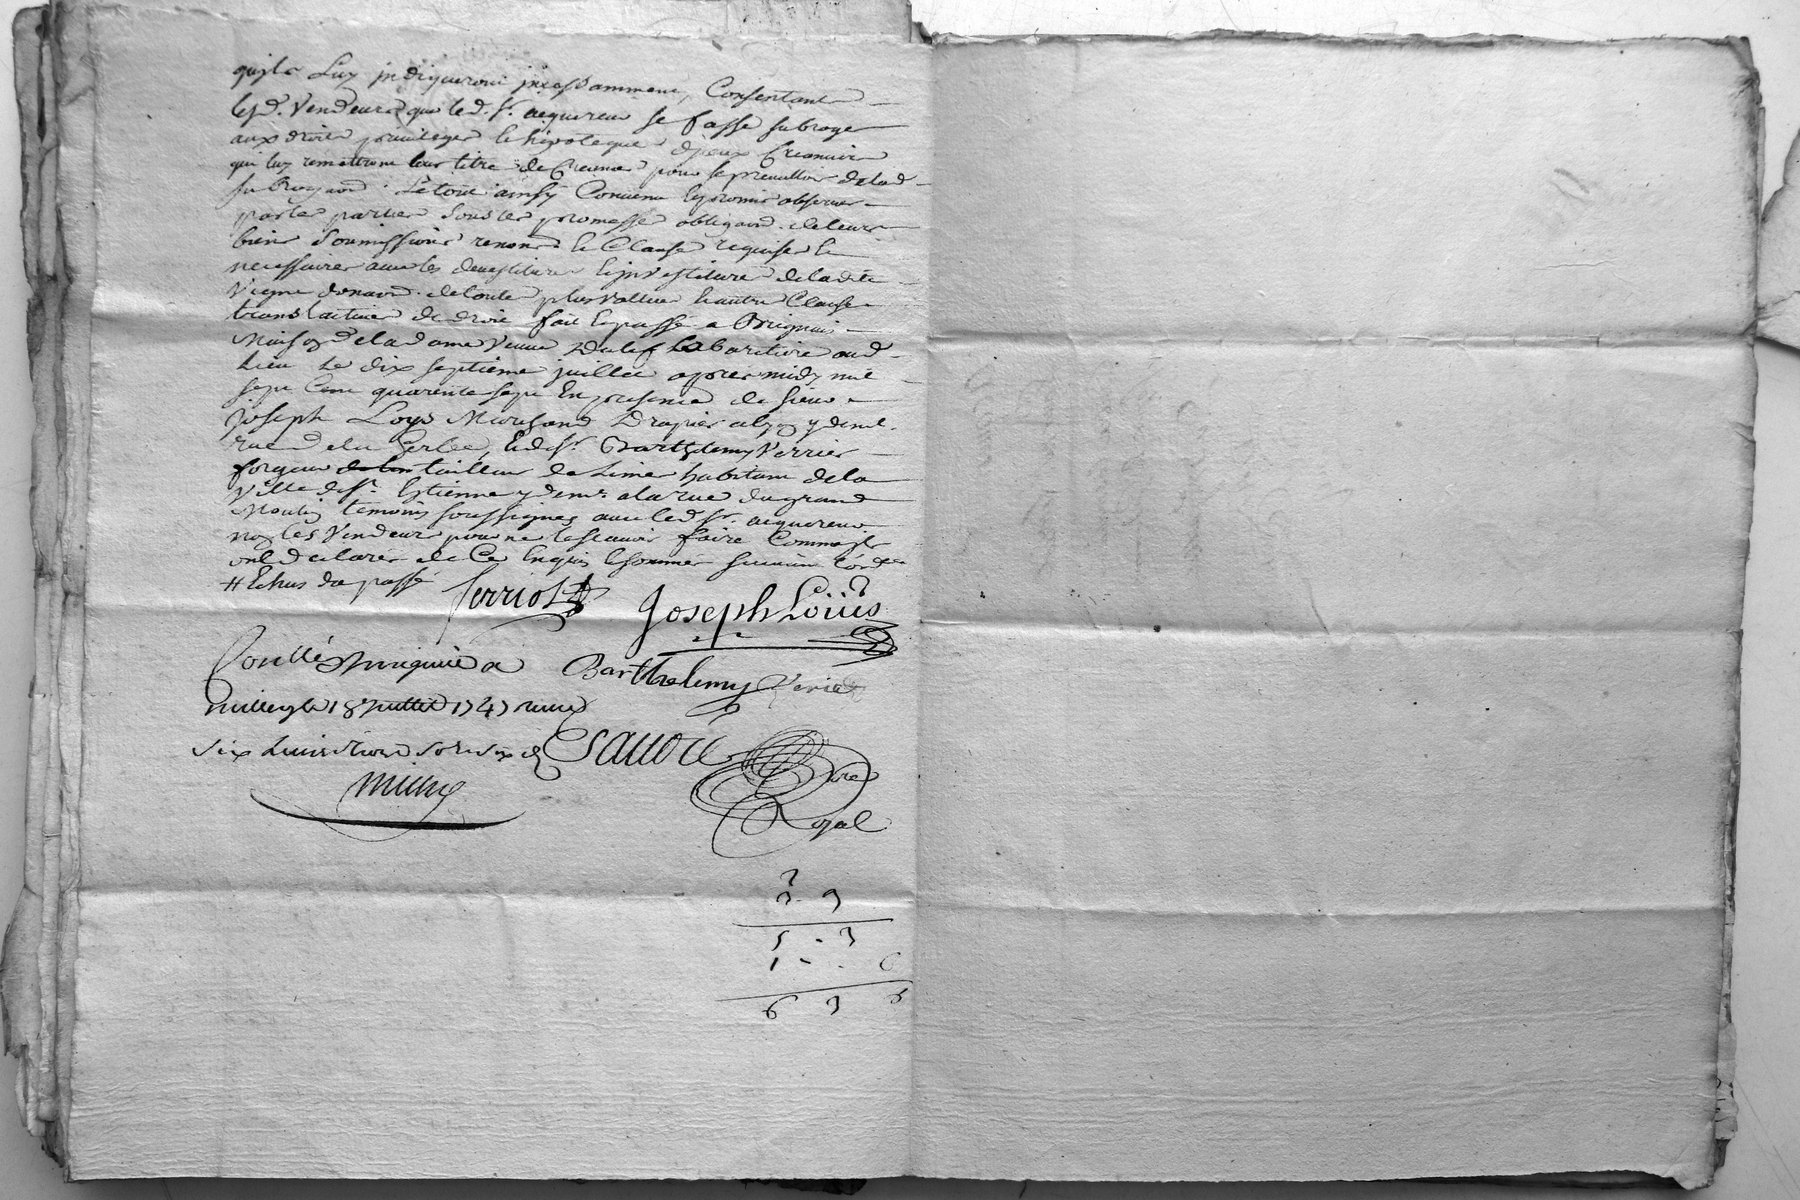 quils Luy indiqueront incessamment, Consentant
lesd. Vendeurs que led. Sr. acquereur se fasse subroger
aux droits privileges et hipoteque d'jceux Creanciers
qui luy remettront leur titre de Creance pour se prevalloir delad.
subrogaon. Le tout ainsy Convenu et promis observer
par les parties sous les promesse obligaon. de leurs
biens soumissions renonc. et Clause requises et
necessaires avec les devestiture et investiture de la dite
Vigne donaon. de toute plus vallue et autre Clause
translatives de droit fait et passé a Brignais
Maison de la dame Veuve Dulef Labaritiere aud.
Lieu Le dix septieme juillet apres midy mil
sept Cent quarente sept En presence de sieur
Joseph Loys Marchand Drapier a Lyon y demt.
rue de la Gerbe, et de Sr. Barthelemy Verrier
forgeur tailleur de Lime habitant de la
Ville de St. Estienne y demt. a la rue du grand
Moulin temoins soussignes avec led. Sr. acquereur
non les Vendeurs pour ne le scavoir faire Comme ils
ont declarés de Ce Enquis et sommés suivant l'ord.ce
# Echus du passé
ferriol
Joseph Loüis
Controllé et insinué a
Barthelemy Verier
milleryle 18e juillet 1747 receu
six livres trois sols six d
Sauvre
Nore
Royal
3
2 9
5 - 3
1 - - 6
6 3 6